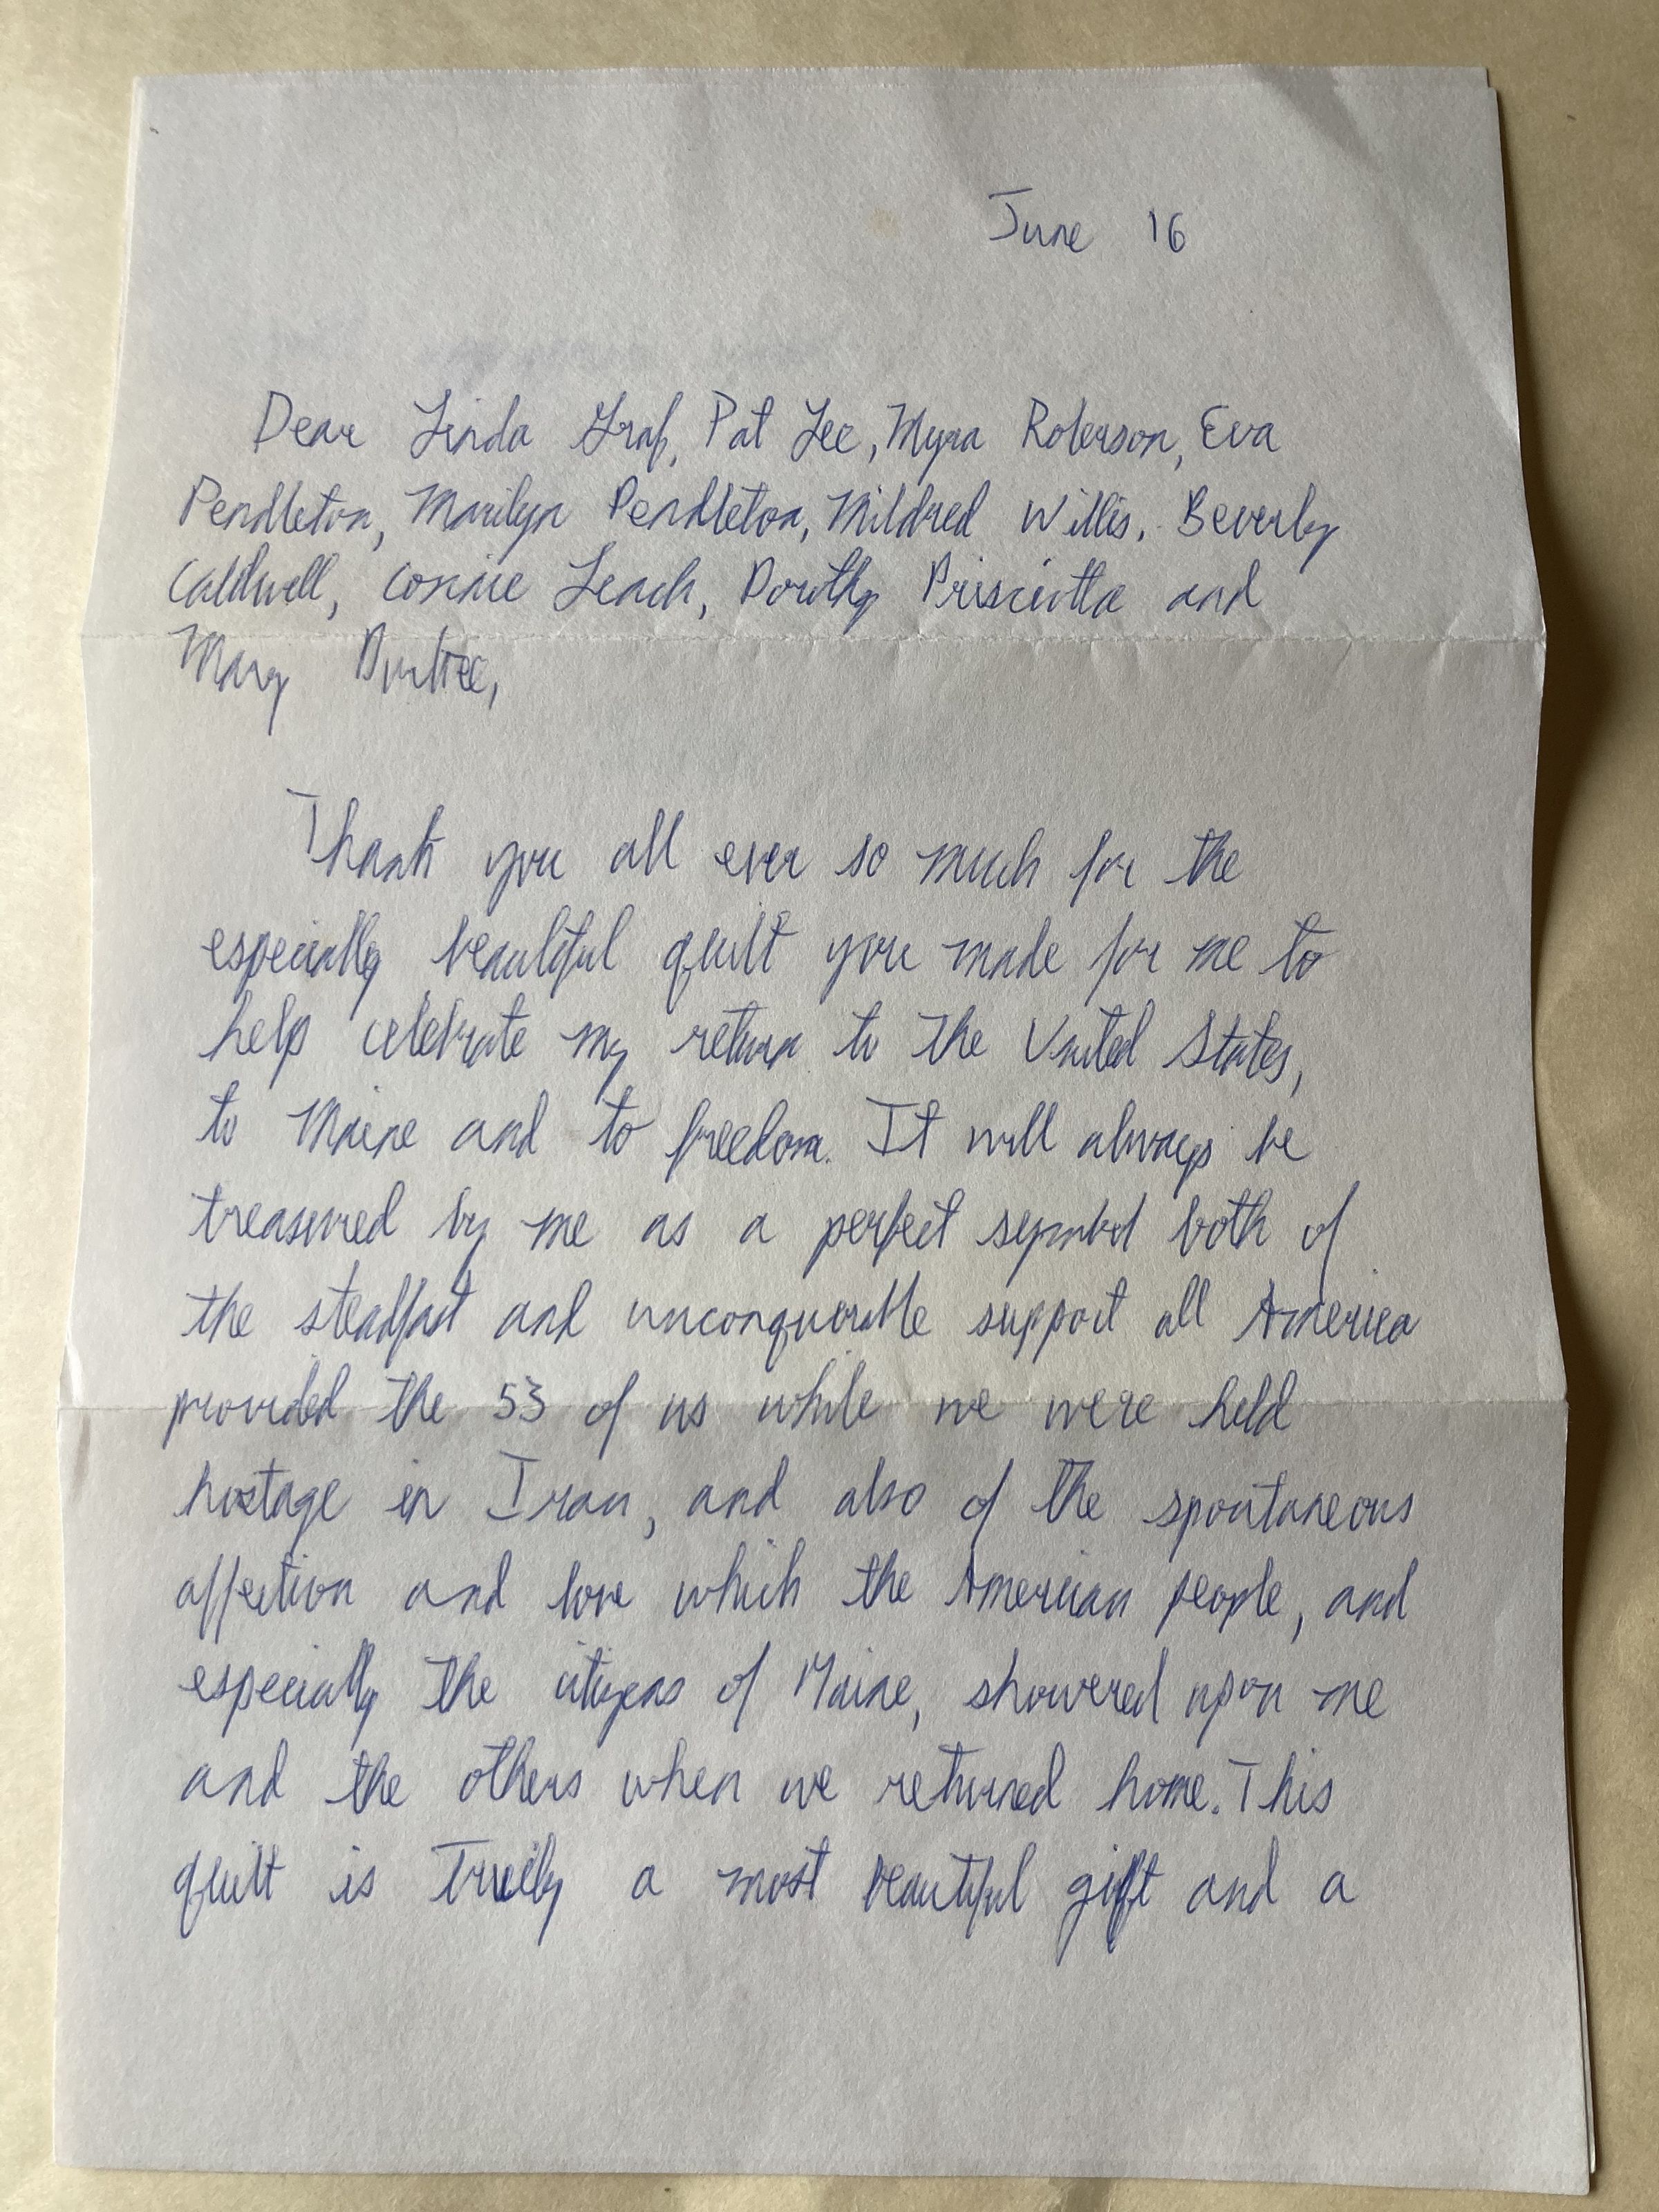 June 16
Dear Linda Graf, Pat Lee, Myra Roberson, Eva
Pendleton, Marilyn Pendleton, Mildred Willis, Beverly
Caldwell, Connie Leach, Dorothy and
Mary
Thank you all ever so much for the
especially beautiful quilt you made for me to
help celebrate my return to the United States,
to Maine and to freedom. It will always be
treasured by me as a perfect symbol both of
the steadfast and unconquerable support all America
provided the 53 of us while we were held
hostage in Iran, and also of the spontaneous
affection and love which the American people, and
especially the citizens of Maine, showered upon me
and the others when we returned home. This
quilt is truely a most beautiful gift and a